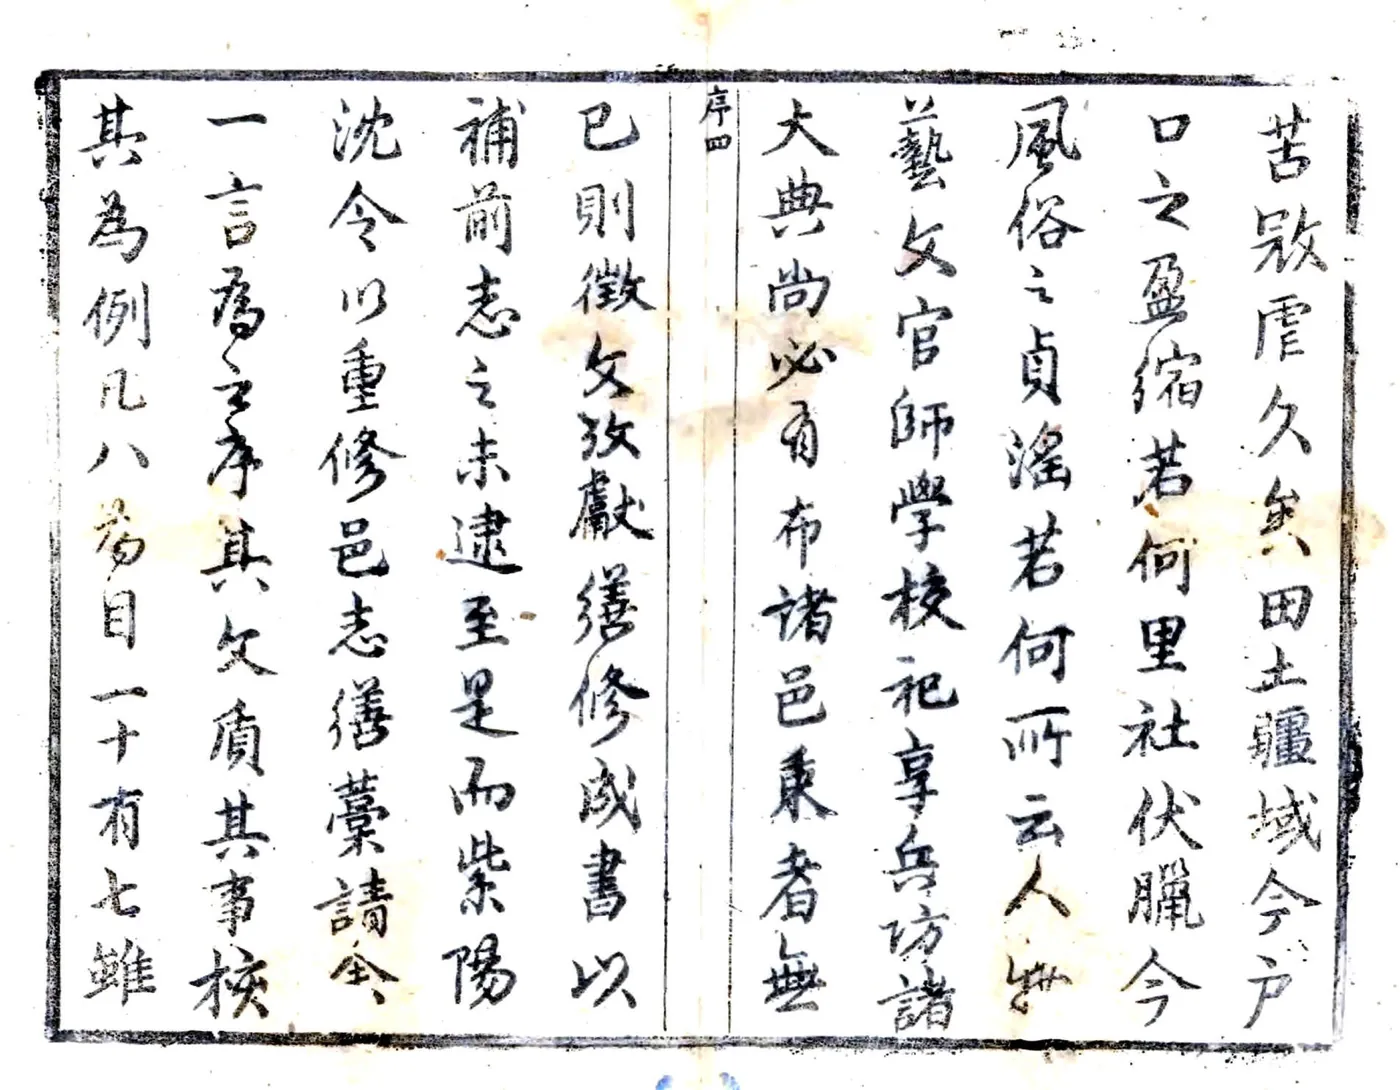 苦寇虐久矣田土疆域今户
口之盈縮若何里社伏臘今
風俗之貞滛若何所云人物
藝文官師學校祀享兵防諸
大典尚必有布諸邑乗者無
序四
已則徵文攷獻繕修成書以
補前志之未逮至是而紫陽
沈令以重修邑志繕藁請余
一言為之序其文質其事核
其為例凡八為目一十有七雖